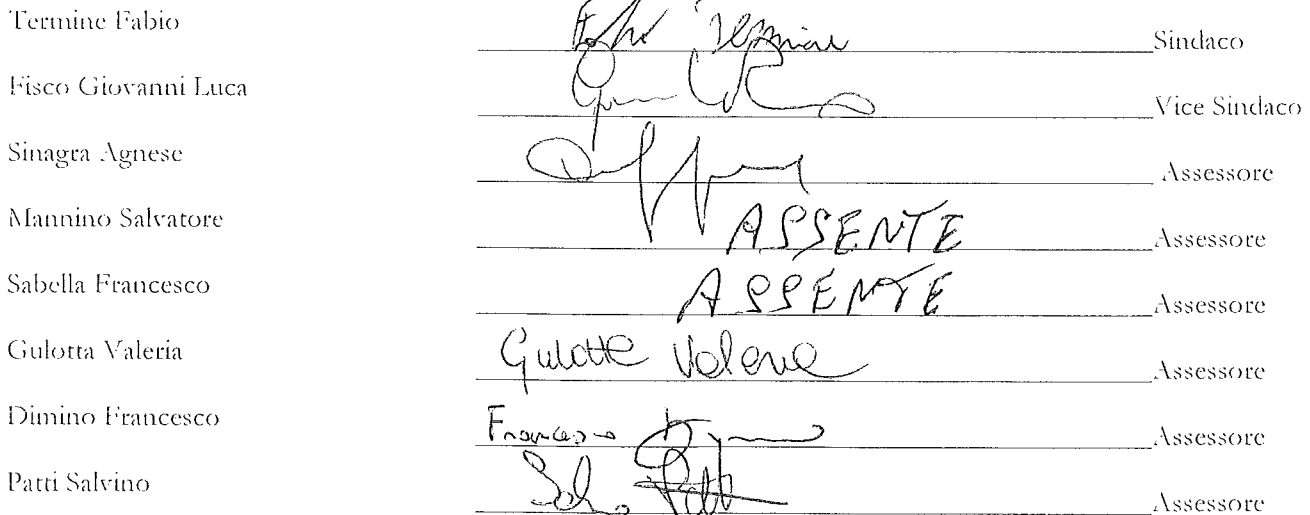 Termine Fabio Fabio Termine Sindaco
Fisco Giovanni Luca Vice Sindaco
Sinagra Agnese Assessore
Mannino Salvatore ASSENTE Assessore
Sabella Francesco ASSENTE Assessore
Gulotta Valeria Gulotta Valeria Assessore
Dimino Francesco Francesco Assessore
Patti Salvino Patti Assessore